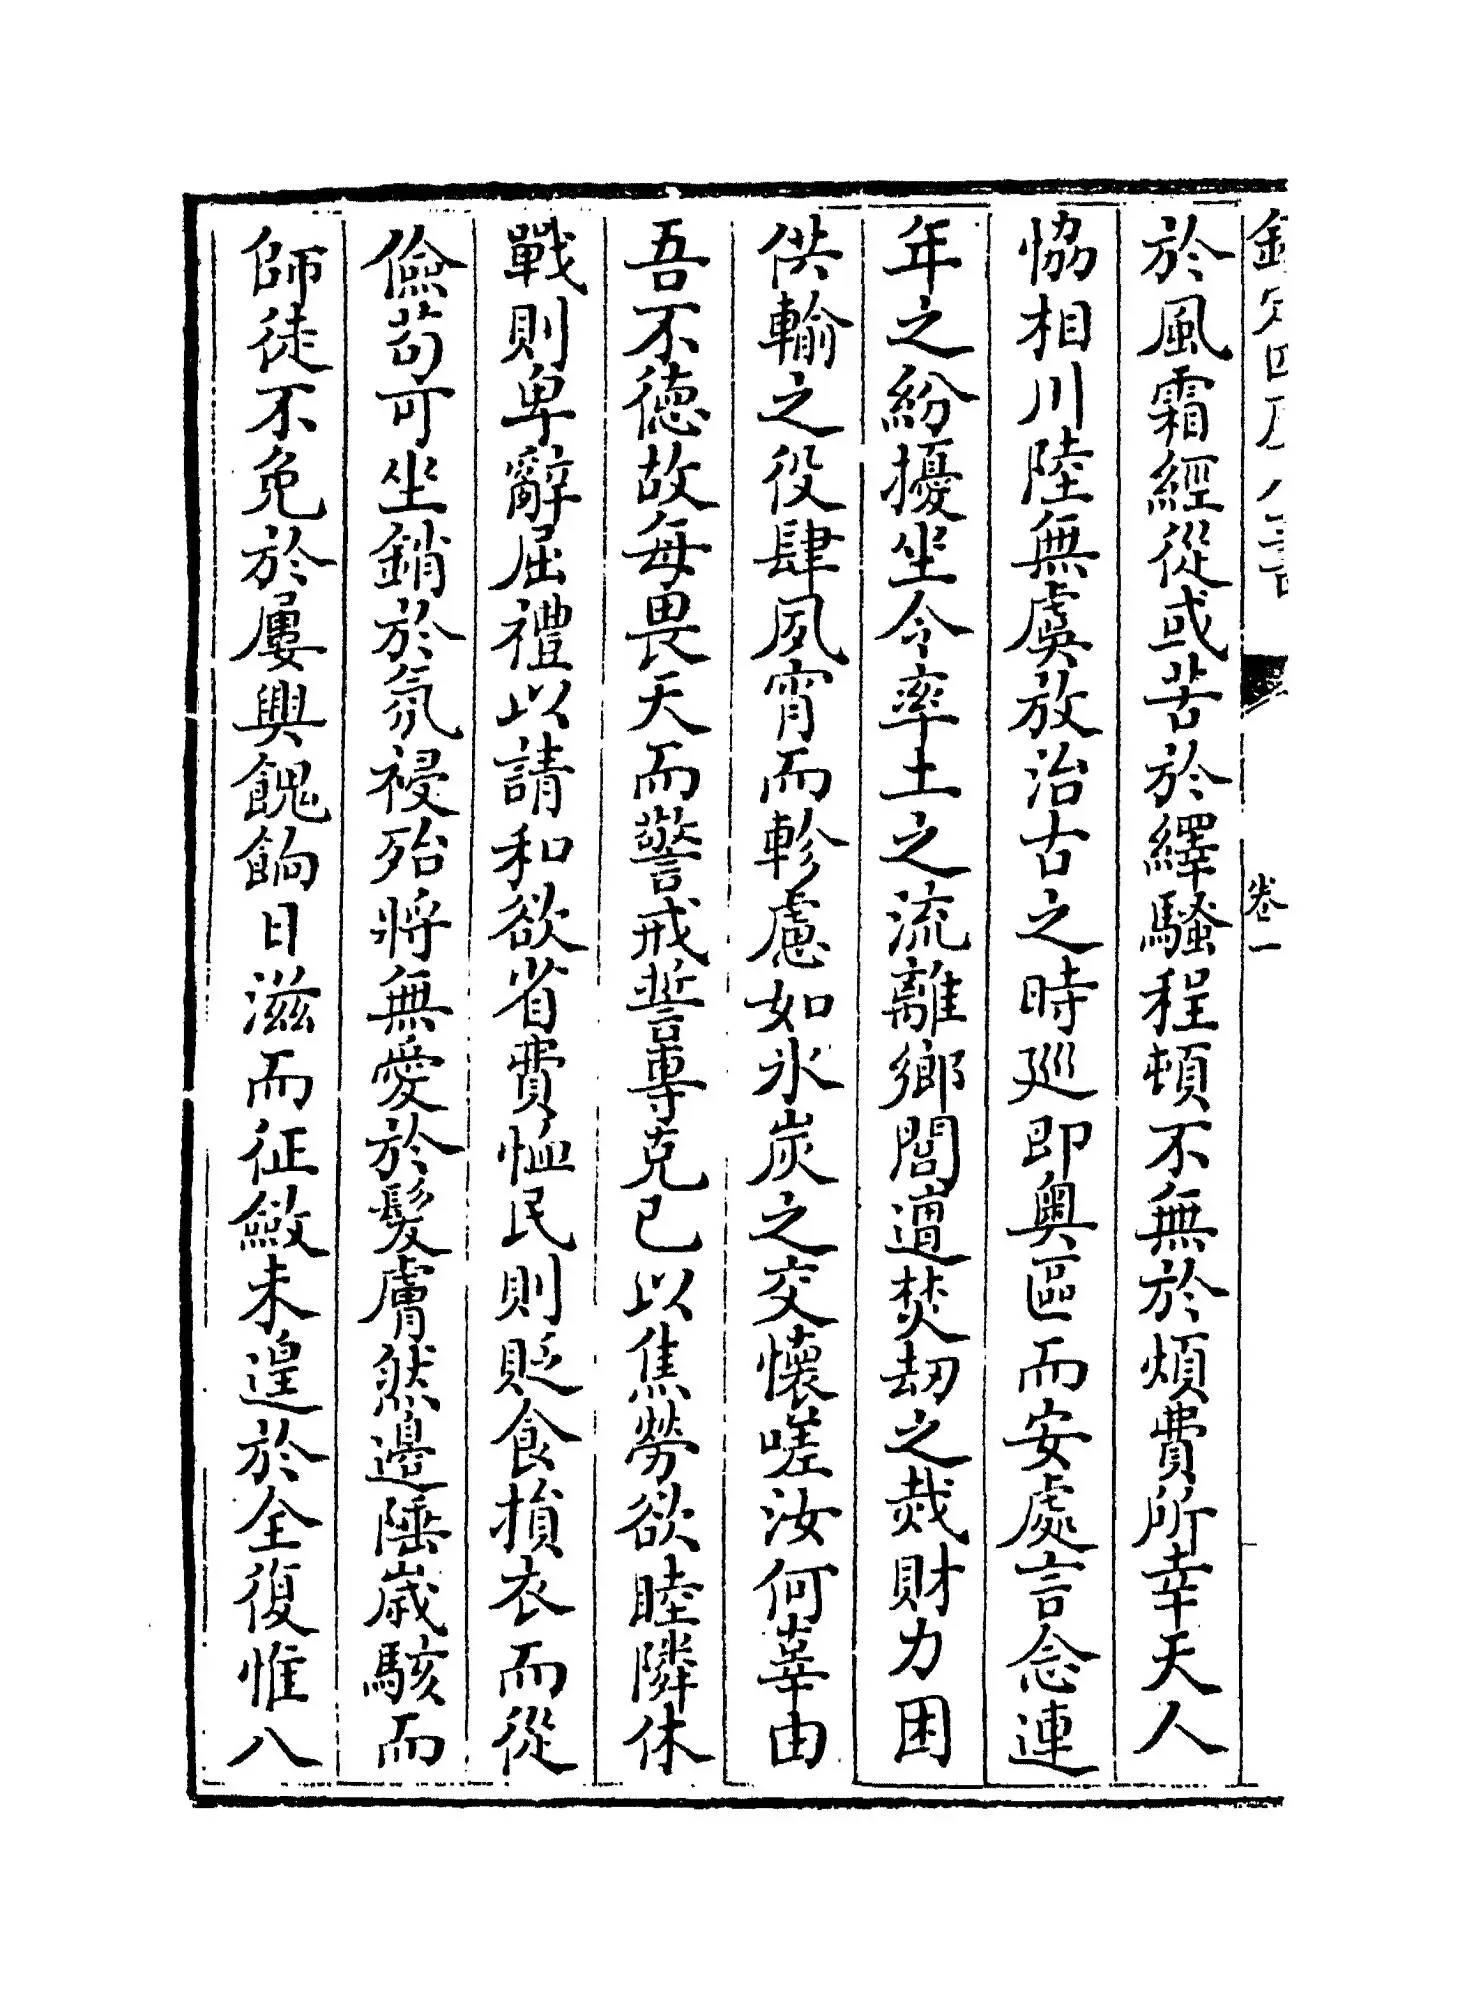 欽定四庫全書 卷一
於風霜經從或苦於繹騷程頓不無於煩費所幸天人
恊相川陸無虞放治古之時廵即奥區而安處言念連
年之紛擾坐令率土之流離鄉閭遭焚刧之烖財力困
供輸之役肆夙宵而軫慮如氷炭之交懷嗟汝何辜由
吾不德故每畏天而警戒誓專克已以焦勞欲睦隣休
戰則卑辭屈禮以請和欲省費恤民則貶食損衣而從
儉苟可坐銷於氛祲殆將無愛於髮膚然邊陲嵗駭而
師徒不免於屢興餽餉日滋而征斂未遑於全復惟八